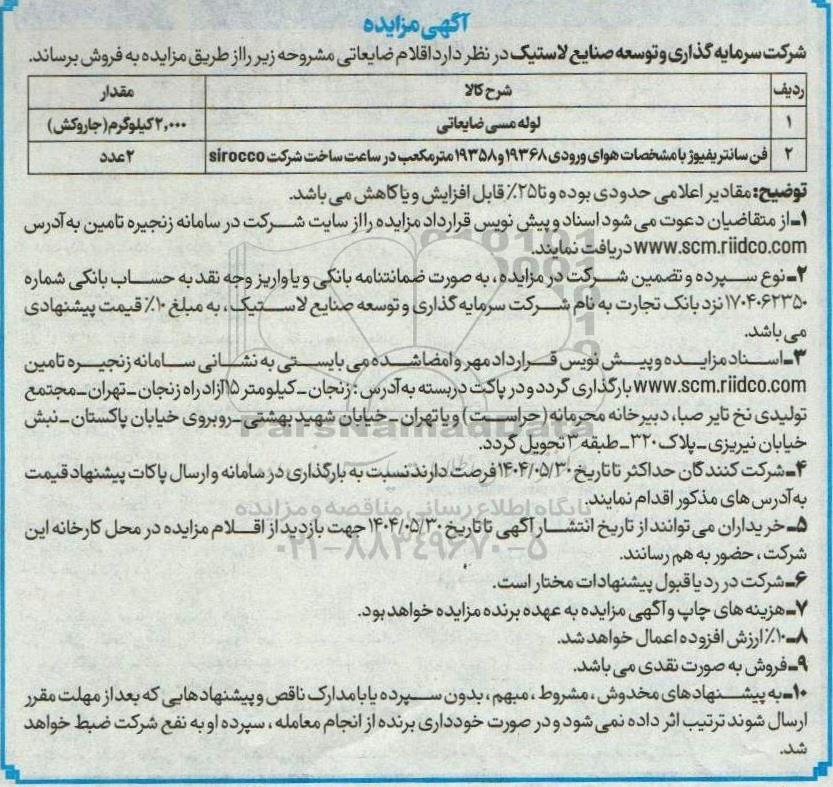 آگهی مزایده
شرکت سرمایه گذاری و توسعه صنایع لاستیک در نظر دارد اقلام ضایعاتی مشروحه زیر را از طریق مزایده به فروش برساند.
ردیف شرح کالا مقدار
۱ لوله مسی ضایعاتی ۲,۰۰۰ کیلوگرم (جاروکش)
۲ فن سانتریفیوژ با مشخصات هوای ورودی ۱۹۳۶۸ و ۱۹۳۵۸ مترمکعب در ساعت ساخت شرکت sirocco ۲ عدد
توضیح: مقادیر اعلامی حدودی بوده و تا ۲۵٪ قابل افزایش و یا کاهش می باشد.
۱ـ از متقاضیان دعوت می شود اسناد و پیش نویس قرارداد مزایده را از سایت شرکت در سامانه زنجیره تامین به آدرس
www.scm.riidco.com دریافت نمایند.
۲ـ نوع سپرده و تضمین شرکت در مزایده، به صورت ضمانتنامه بانکی و یا واریز وجه نقد به حساب بانکی شماره
۱۷۰۴۰۶۲۳۵۰ نزد بانک تجارت به نام شرکت سرمایه گذاری و توسعه صنایع لاستیک، به مبلغ ۱۰٪ قیمت پیشنهادی
می باشد.
۳ـ اسناد مزایده و پیش نویس قرارداد مهر و امضا شده می بایستی به نشانی سامانه زنجیره تامین
www.scm.riidco.com بارگذاری گردد و در پاکت دربسته به آدرس: زنجان ـ کیلومتر ۱۵ آزاد راه زنجان ـ تهران ـ مجتمع
تولیدی نخ تایر صبا، دبیرخانه محرمانه (حراست) و یا تهران ـ خیابان شهید بهشتی ـ روبروی خیابان پاکستان ـ نبش
خیابان نیریزی ـ پلاک ۳۲۰ ـ طبقه ۳ تحویل گردد.
۴ـ شرکت کنندگان حداکثر تا تاریخ ۱۴۰۴/۰۵/۳۰ فرصت دارند نسبت به بارگذاری در سامانه و ارسال پاکات پیشنهاد قیمت
به آدرس های مذکور اقدام نمایند.
۵ـ خریداران می توانند از تاریخ انتشار آگهی تا تاریخ ۱۴۰۴/۰۵/۳۰ جهت بازدید از اقلام مزایده در محل کارخانه این
شرکت، حضور به هم رسانند.
۶ـ شرکت در رد یا قبول پیشنهادات مختار است.
۷ـ هزینه های چاپ و آگهی مزایده به عهده برنده مزایده خواهد بود.
۸ـ ۱۰٪ ارزش افزوده اعمال خواهد شد.
۹ـ فروش به صورت نقدی می باشد.
۱۰ـ به پیشنهادهای مخدوش، مشروط، مبهم، بدون سپرده یا با مدارک ناقص و پیشنهادهایی که بعد از مهلت مقرر
ارسال شوند ترتیب اثر داده نمی شود و در صورت خودداری برنده از انجام معامله، سپرده او به نفع شرکت ضبط خواهد
شد.
ParsNamadData
پایگاه اطلاع رسانی مناقصه و مزایده
۰۲۱-۸۸۳۴۹۶۷۰-۵